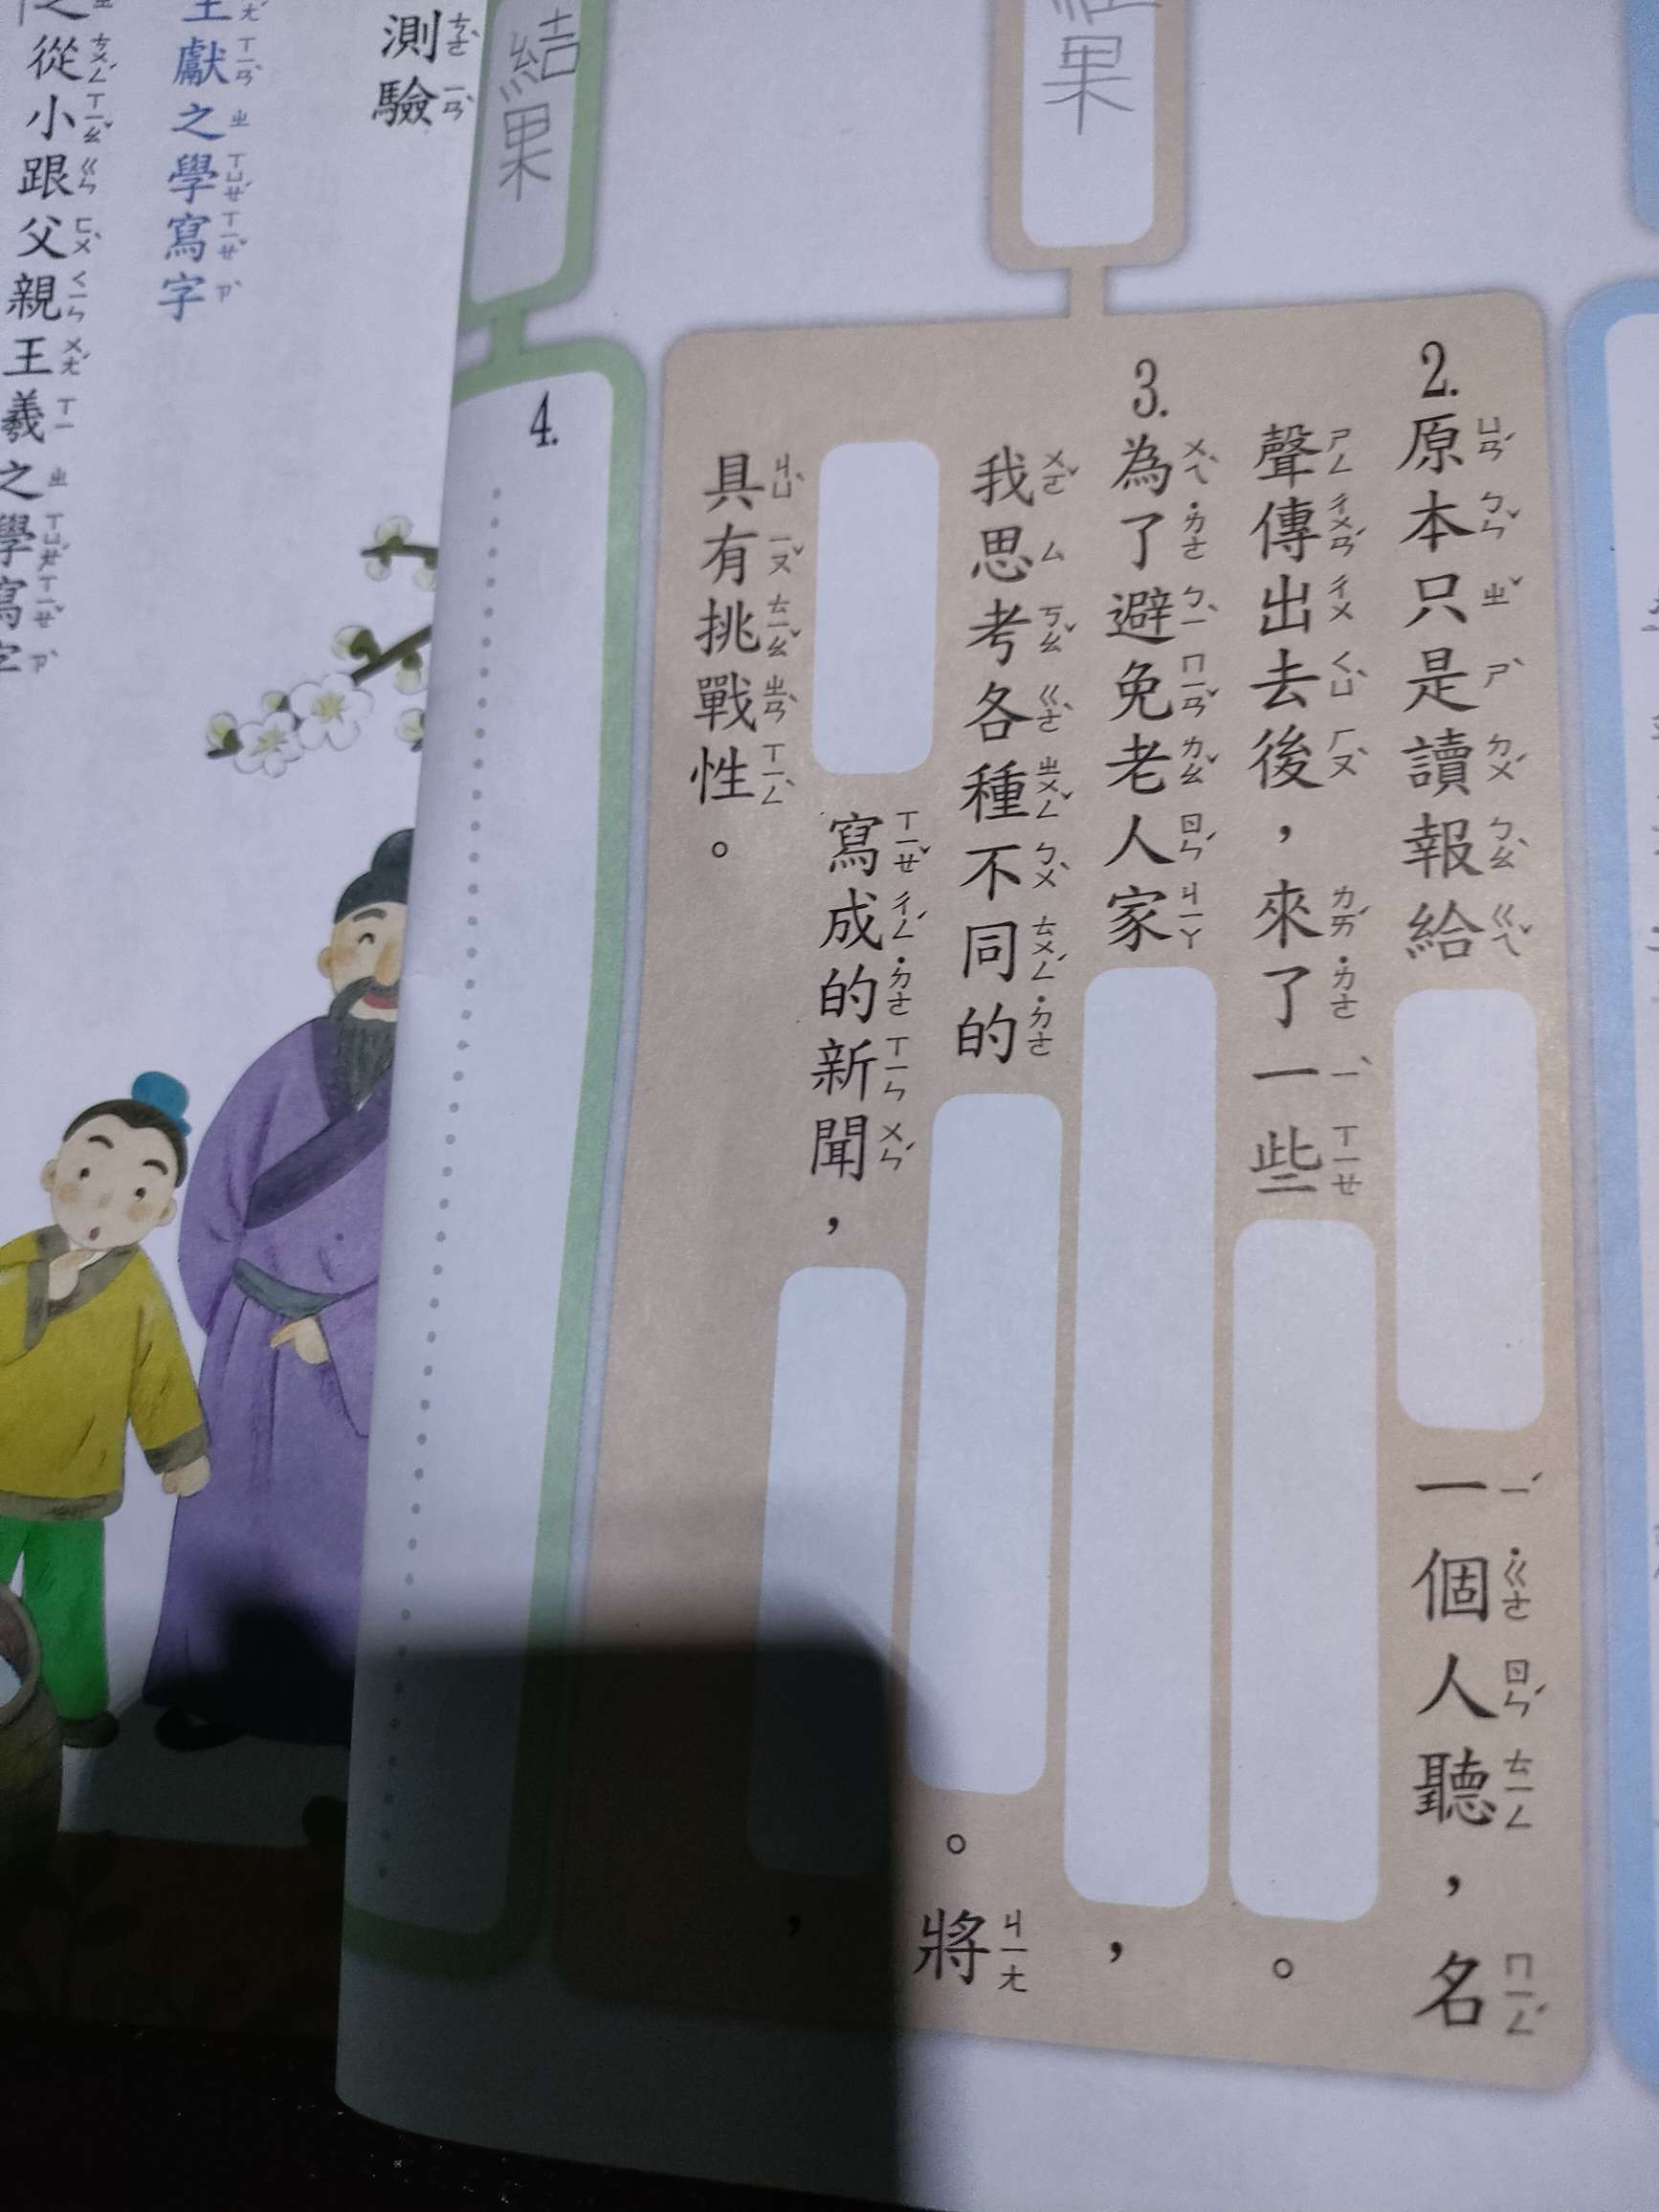 2.原本只是讀報給 一個人聽，名
聲傳出去後，來了一些 。
3.為了避免老人家 ，
我思考各種不同的 。將
寫成的新聞， ，
具有挑戰性。
果
結果
4.
測驗
王獻之學寫字
從小跟父親王羲之學寫字